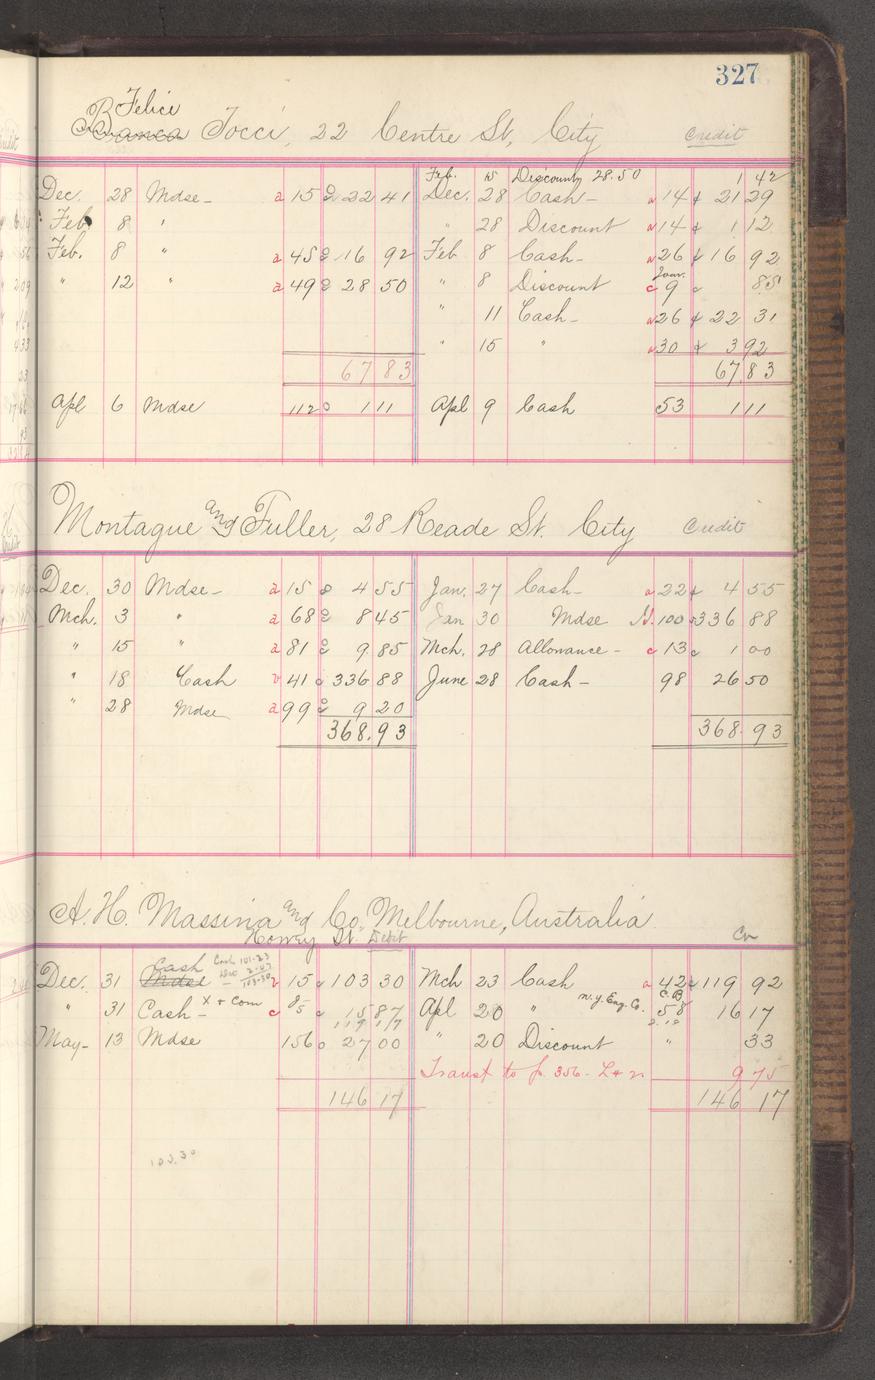 327
Felice
Banca Tocci, 22 Centre St, City Credit
Feb. 15 Discount 28.50 1 42
Dec. 28 Mdse - a 15 22 41 Dec. 28 Cash - a 14 21 29
Feb 8 " " 28 Discount a 14 1 12
Feb. 8 " a 45 16 92 Feb 8 Cash - a 26 16 92
" 12 " a 49 28 50 " 8 Discount c Jour. 9 85
" 11 Cash - a 26 22 31
" 15 " a 30 3 92
67 83 67.83
Apl 6 Mdse 112 1 11 Apl 9 Cash 53 1 11
Montague and Fuller, 28 Reade St. City Credit
Dec. 30 Mdse - a 15 4 55 Jan. 27 Cash - a 22 4 55
Mch. 3 " a 68 8 45 Jan 30 Mdse 100 336 88
" 15 " a 81 9 85 Mch. 28 Allowance - c 13 1 00
" 18 Cash 41 336 88 June 28 Cash - 98 26 50
" 28 Mdse a 99 9 20
368.93 368.93
A. H. Massina and Co. Melbourne, Australia
Howey St. Debit Cr
Cash Cash 101.23
2.07
103.30
Dec. 31 Mdse 15 103 30 Mch 23 Cash a 42 119 92
" 31 Cash - x + Com c 85 15 87 Apl 20 " N.Y. Eng. Co. C.B. 58 16 17
119 17
May - 13 Mdse 156 27 00 " 20 Discount " 33
Transf to p. 356 - 9 75
146 17 146 17
103.30